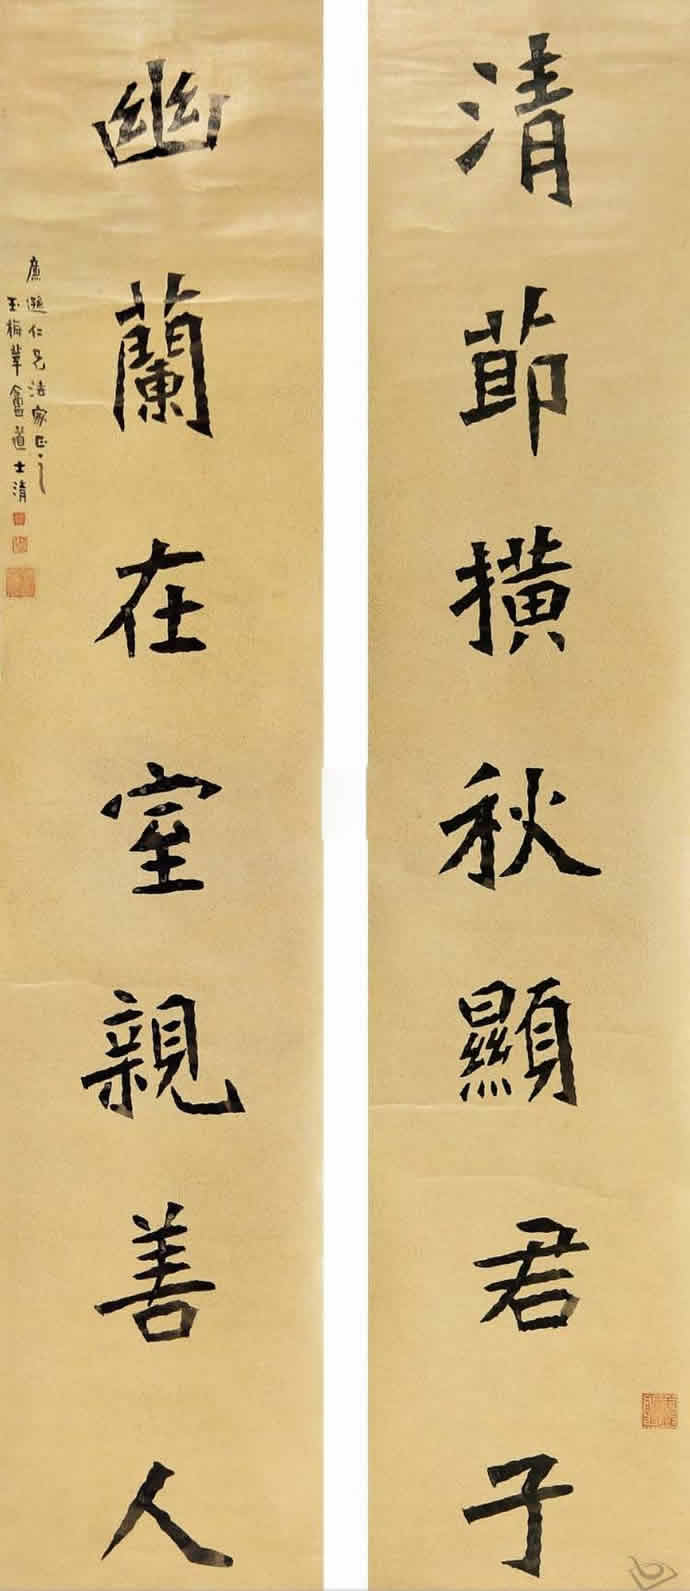 清莭撗秋顯君子
幽蘭在室親善人
仁兄法家正之
玉梅華盦道士清